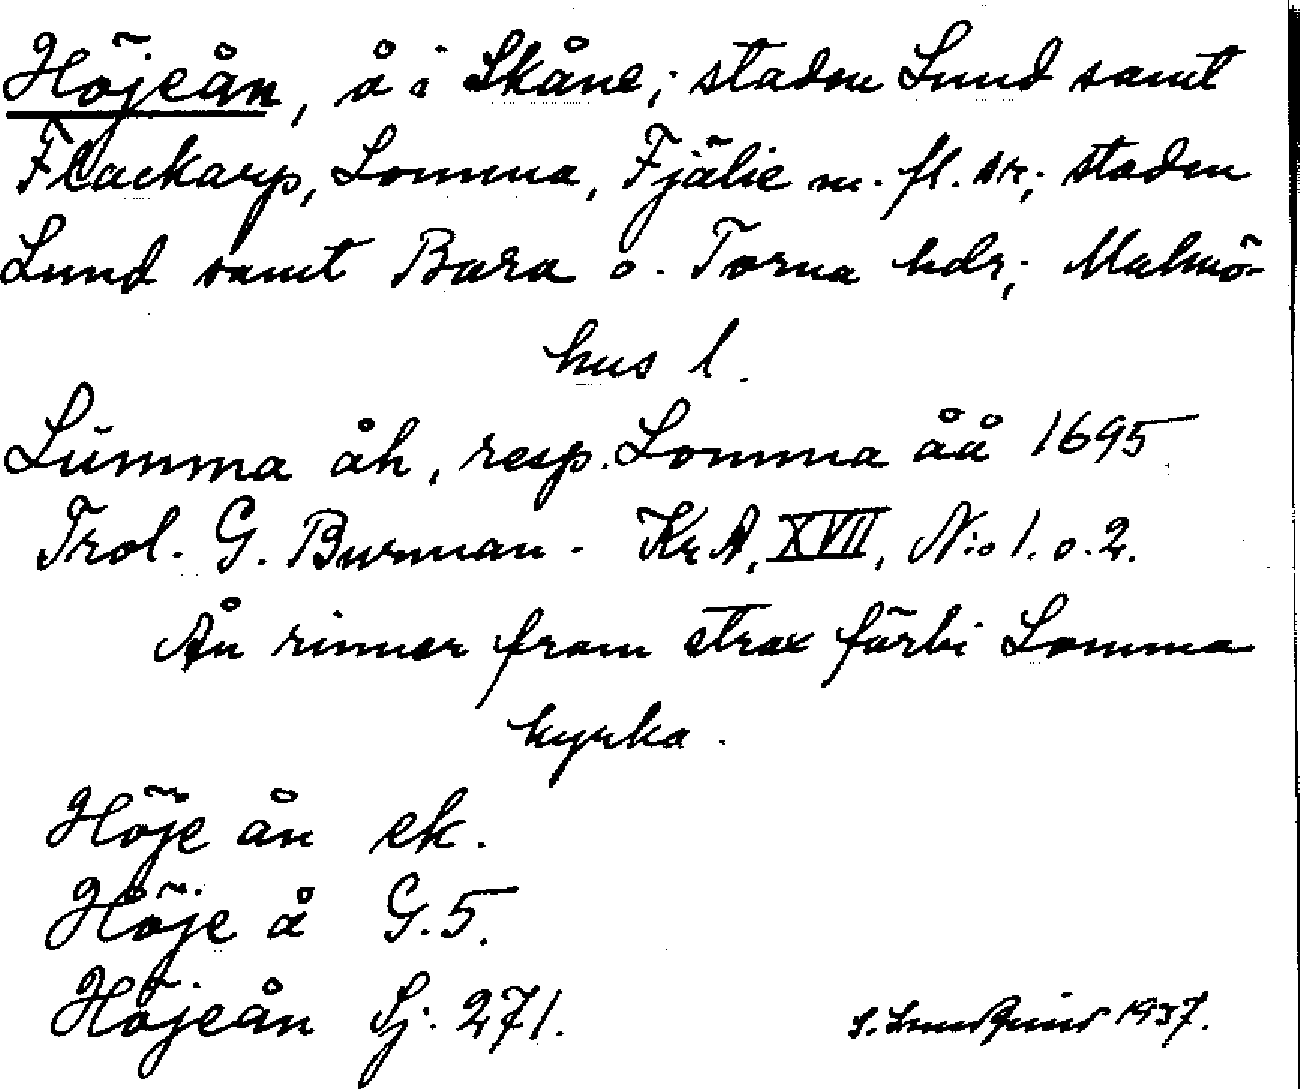 Höjeån, å i Skåne; staden Lund samt
Flackarp, Lomma, Fjälie m. fl. sr; staden
Lund samt Bara o. Torna hdr; Malmö-
hus l.
Lumma åh, resp. Lomma åå 1695
Trol. G. Burman. Kr A, XVII, N:o 1. o. 2.
Ån rinner fram strax förbi Lomma
kyrka.
Höje ån ek.
Höje å G. 5.
Höjeån Sj. 271.
1937.